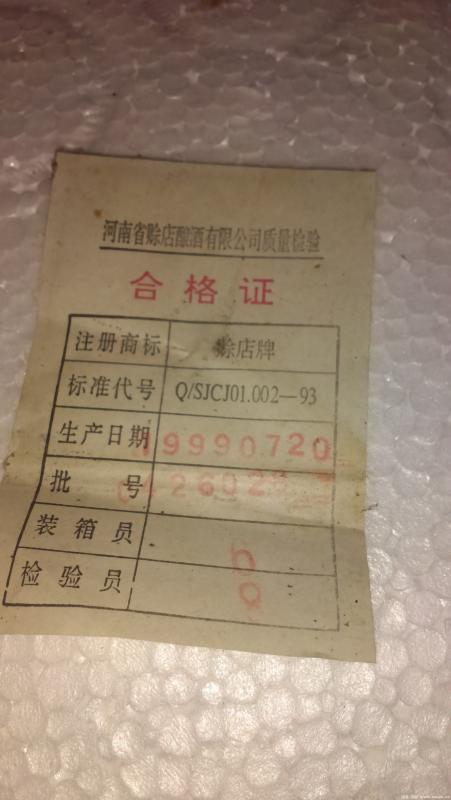 河南省赊店酿酒有限公司质量检验
合格证
注册商标 赊店牌
标准代号 Q/SJCJ01.002—93
生产日期 19990720
批号
装箱员
检验员